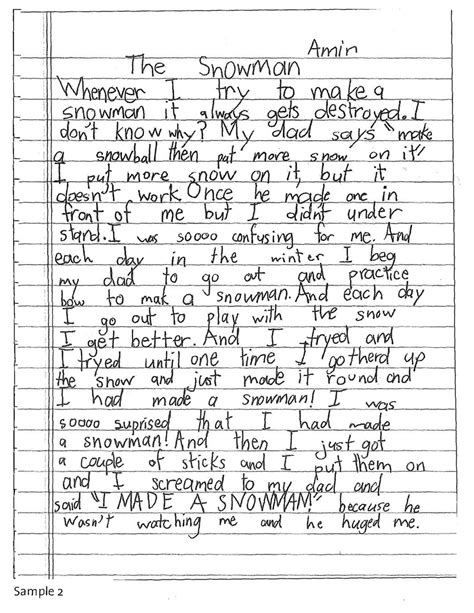 Amin
The Snowman
Whenever I try to make a
snowman it always gets destroyed. I
don't know why? My dad says "make
a snowball then pat more snow on it"
I put more snow on it, but it
doesn't work. Once he made one in
front of me but I didn't under
stand. I was soooo confusing for me. And
each day in the winter I beg
my dad to go out and practice
how to mak a snowman. And each day
I go out to play with the snow
I get better. And I tryed and
I tryed until one time I gotherd up
the snow and just made it round and
I had made a snowman! I was
soooo suprised that I had made
a snowman! And then I just got
a couple of sticks and I put them on
and I screamed to my dad and
said "I MADE A SNOWMAM!" because he
wasn't watching me and he huged me.
Sample 2